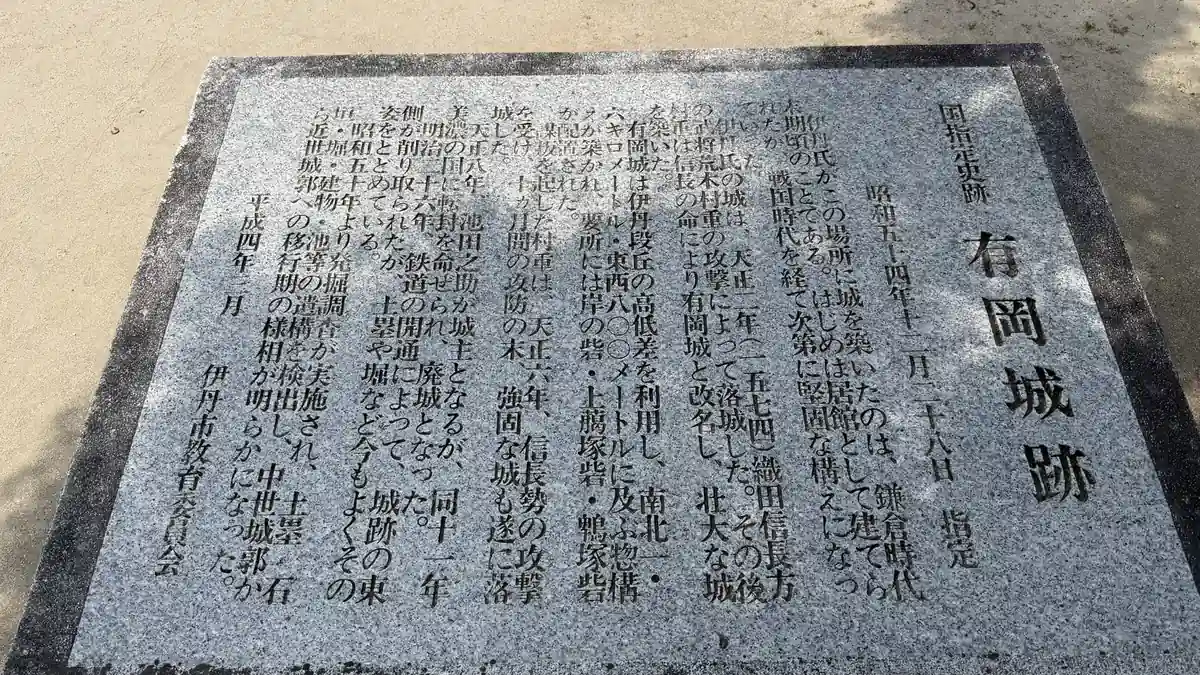 国指定史跡 有岡城跡
昭和五十四年十二月二十八日 指定
伊丹氏がこの場所に城を築いたのは、鎌倉時代
末期頃のことである。はじめは居館として建てら
れたが、戦国時代を経て次第に堅固な構えになっ
ていった。
伊丹氏の城は、天正二年(一五七四)織田信長方
の武将荒木村重の攻撃によって落城した。その後
村重は信長の命により有岡城と改名し、壮大な城
を築いた。
有岡城は伊丹段丘の高低差を利用し、南北一・
六キロメートル・東西八〇〇メートルに及ぶ惣構
えが築かれ、要所には岸の砦・上臈塚砦・鵯塚砦
が配置された。
謀叛を起した村重は、天正六年、信長勢の攻撃
を受け、十か月間の攻防の末、強固な城も遂に落
城した。
天正八年、池田之助が城主となるが、同十一年
美濃の国に転封を命ぜられ、廃城となった。
明治二十六年、鉄道の開通によって、城跡の東
側が削り取られたが、土塁や堀など今もよくその
姿をとどめている。
昭和五十年より発掘調査が実施され、土塁・石
垣・堀・建物・池等の遺構を検出し、中世城郭か
ら近世城郭への移行期の様相が明らかになった。
平成四年三月 伊丹市教育委員会